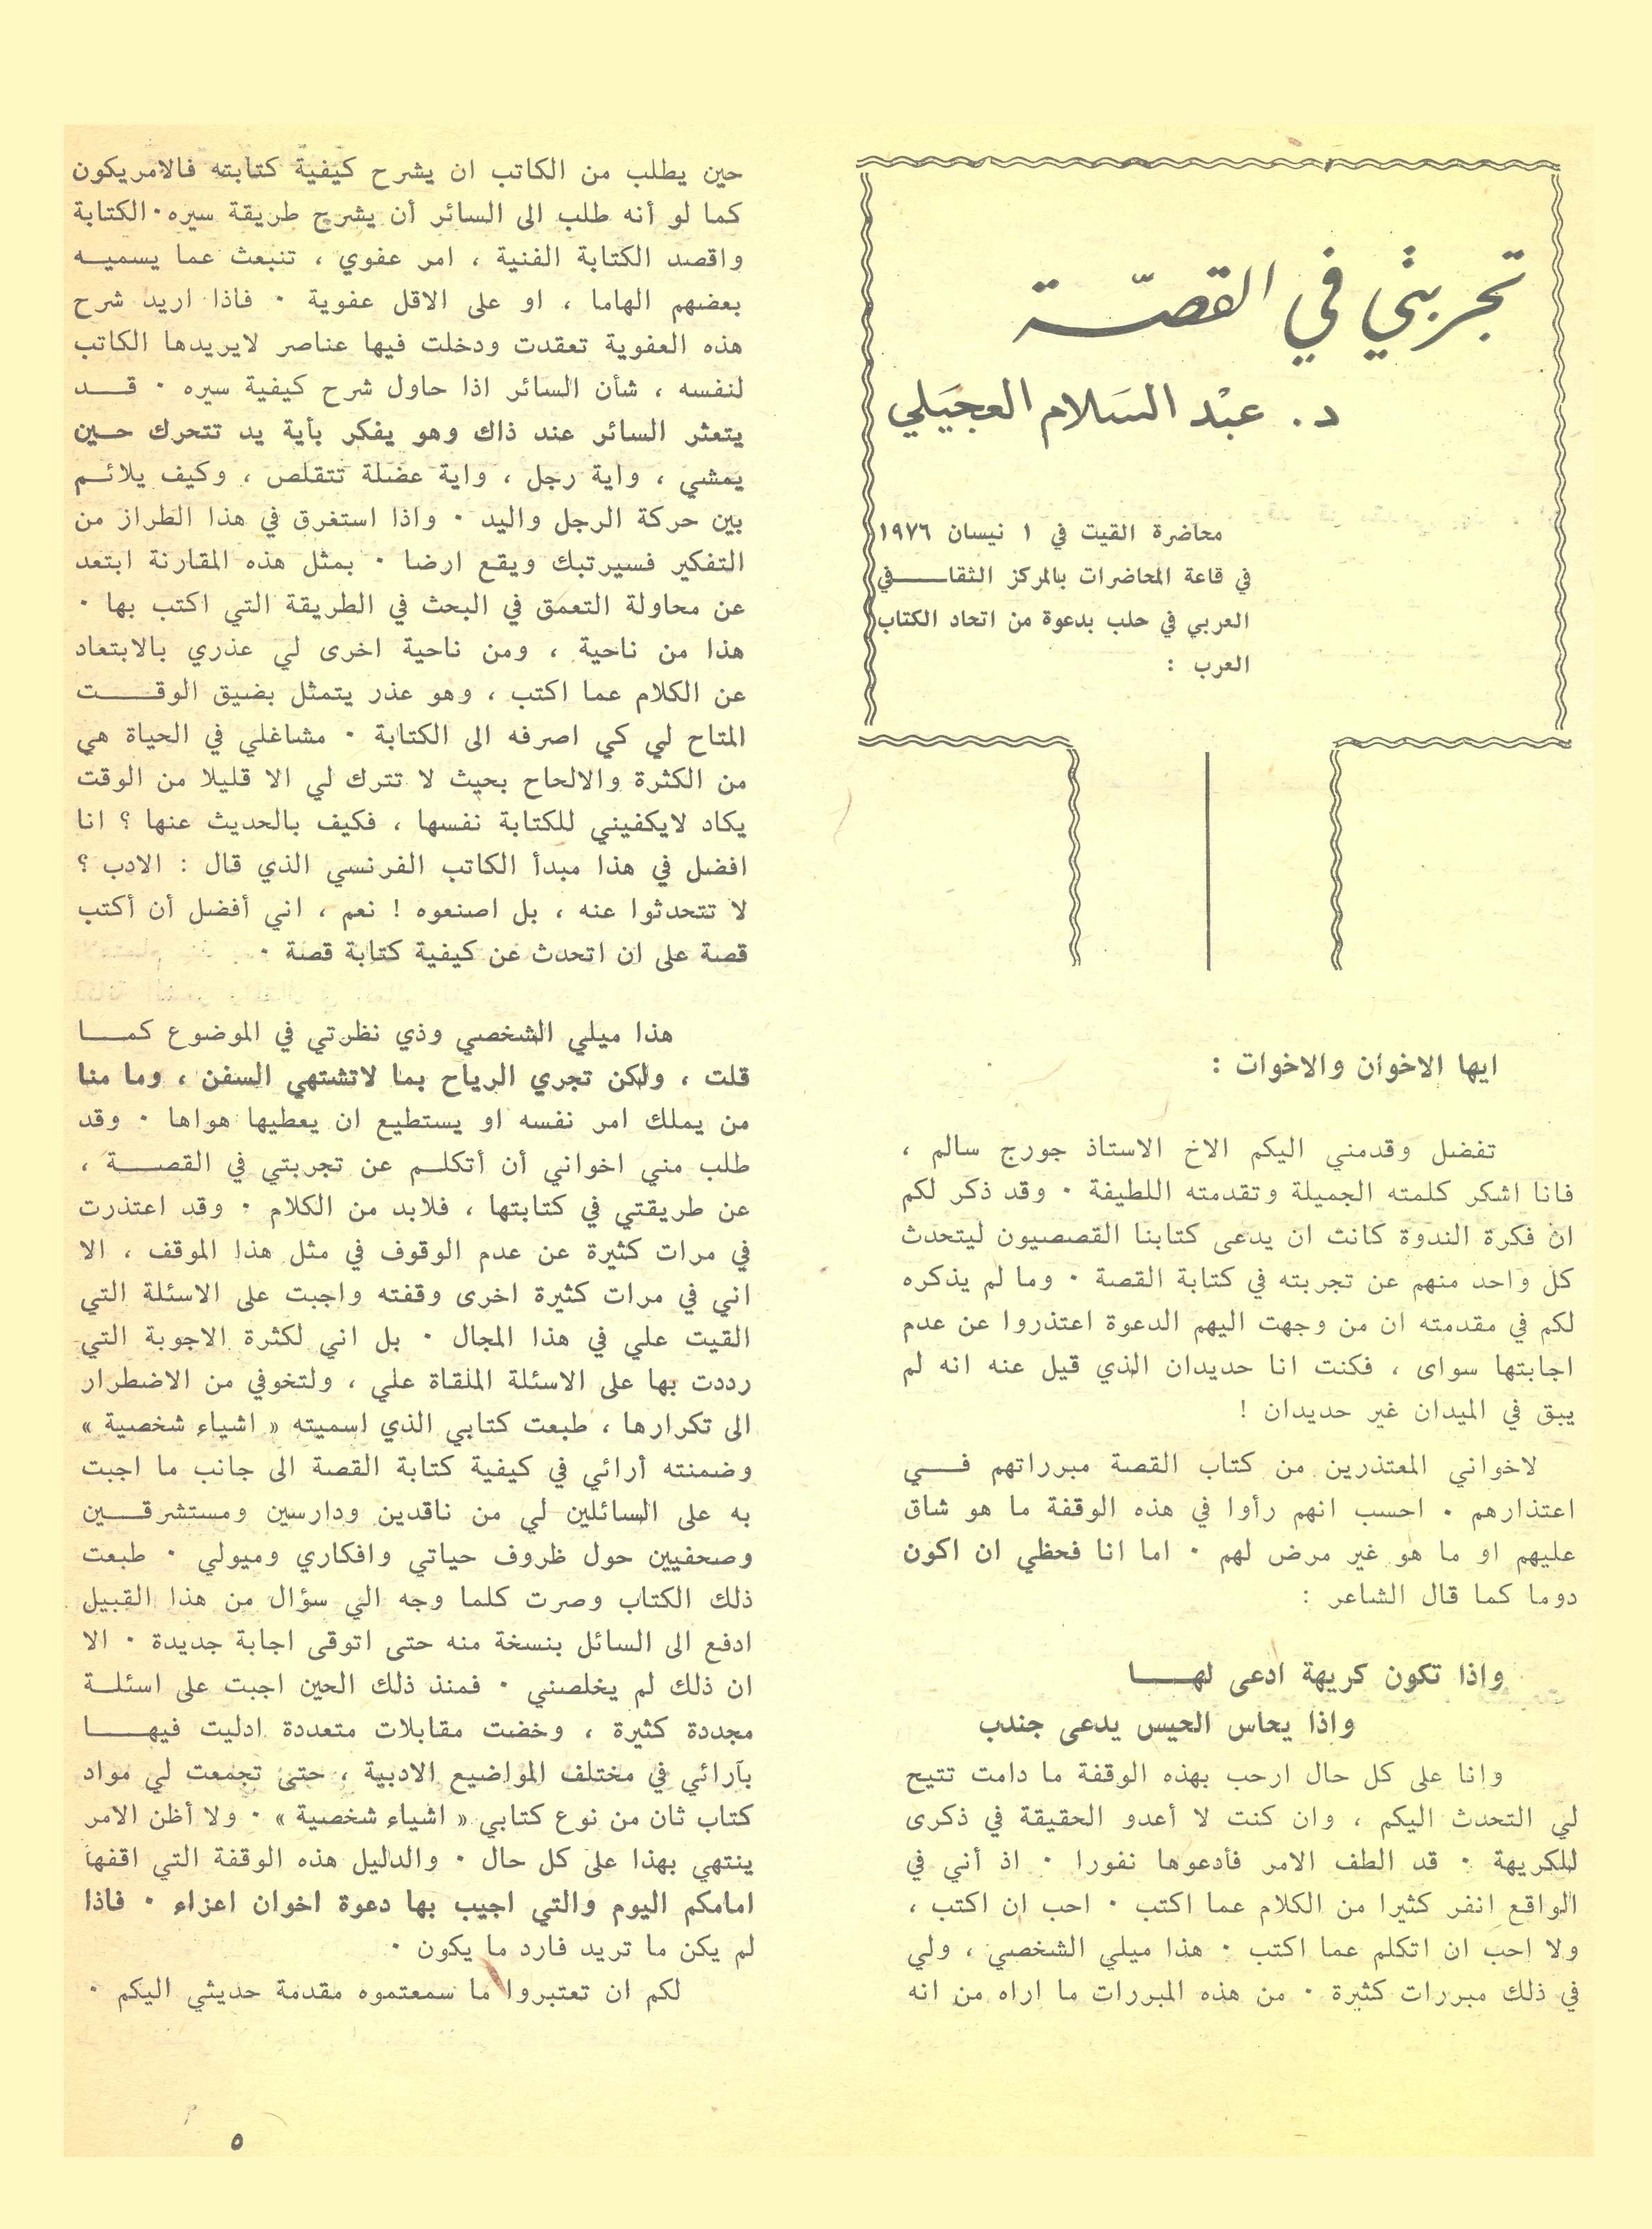 تجربتي في القصّة
د. عبْد السَلام العجَيلي
محاضرة القيت في ١ نيسان ١٩٧٦
في قاعة المحاضرات بالمركز الثقافي
العربي في حلب بدعوة من اتحاد الكتاب
العرب :
ايها الاخوان والاخوات :
تفضل وقدمني اليكم الاخ الاستاذ جورج سالم ،
فانا اشكر كلمته الجميلة وتقدمته اللطيفة ٠ وقد ذكر لكم
ان فكرة الندوة كانت ان يدعى كتابنا القصصيون ليتحدث
كل واحد منهم عن تجربته في كتابة القصة ٠ وما لم يذكره
لكم في مقدمته ان من وجهت اليهم الدعوة اعتذروا عن عدم
اجابتها سواى ، فكنت انا حديدان الذي قيل عنه انه لم
يبق في الميدان غير حديدان !
لاخواني المعتذرين من كتاب القصة مبرراتهم في
اعتذارهم ٠ احسب انهم رأوا في هذه الوقفة ما هو شاق
عليهم او ما هو غير مرض لهم ٠ اما انا فحظي ان اكون
دوما كما قال الشاعر :
واذا تكون كريهة ادعى لها
واذا يحاس الحيس يدعى جندب
وانا على كل حال ارحب بهذه الوقفة ما دامت تتيح
لي التحدث اليكم ، وان كنت لا أعدو الحقيقة في ذكرى
للكريهة ٠ قد الطف الامر فأدعوها نفورا ٠ اذ أني في
الواقع انفر كثيرا من الكلام عما اكتب ٠ احب ان اكتب ،
ولا احب ان اتكلم عما اكتب ٠ هذا ميلي الشخصي ، ولي
في ذلك مبررات كثيرة ٠ من هذه المبررات ما اراه من انه
حين يطلب من الكاتب ان يشرح كيفية كتابته فالامر يكون
كما لو أنه طلب الى السائر أن يشرح طريقة سيره ٠ الكتابة
واقصد الكتابة الفنية ، امر عفوي ، تنبعث عما يسميه
بعضهم الهاما ، او على الاقل عفوية ٠ فاذا اريد شرح
هذه العفوية تعقدت ودخلت فيها عناصر لايريدها الكاتب
لنفسه ، شأن السائر اذا حاول شرح كيفية سيره ٠ قد
يتعثر السائر عند ذاك وهو يفكر بأية يد تتحرك حين
يمشي ، واية رجل ، واية عضلة تتقلص ، وكيف يلائم
بين حركة الرجل واليد ٠ واذا استغرق في هذا الطراز من
التفكير فسيرتبك ويقع ارضا ٠ بمثل هذه المقارنة ابتعد
عن محاولة التعمق في البحث في الطريقة التي اكتب بها ٠
هذا من ناحية ، ومن ناحية اخرى لي عذري بالابتعاد
عن الكلام عما اكتب ، وهو عذر يتمثل بضيق الوقت
المتاح لي كي اصرفه الى الكتابة ٠ مشاغلي في الحياة هي
من الكثرة والالحاح بحيث لا تترك لي الا قليلا من الوقت
يكاد لايكفيني للكتابة نفسها ، فكيف بالحديث عنها ؟ انا
افضل في هذا مبدأ الكاتب الفرنسي الذي قال : الادب ؟
لا تتحدثوا عنه ، بل اصنعوه ! نعم ، اني أفضل أن أكتب
قصة على ان اتحدث عن كيفية كتابة قصة ٠
هذا ميلي الشخصي وذي نظرتي في الموضوع كما
قلت ، ولكن تجري الرياح بما لاتشتهي السفن ، وما منا
من يملك امر نفسه او يستطيع ان يعطيها هواها ٠ وقد
طلب مني اخواني أن أتكلم عن تجربتي في القصة ،
عن طريقتي في كتابتها ، فلابد من الكلام ٠ وقد اعتذرت
في مرات كثيرة عن عدم الوقوف في مثل هذا الموقف ، الا
اني في مرات كثيرة اخرى وقفته واجبت على الاسئلة التي
القيت علي في هذا المجال ٠ بل اني لكثرة الاجوبة التي
رددت بها على الاسئلة الملقاة علي ، ولتخوفي من الاضطرار
الى تكرارها ، طبعت كتابي الذي اسميته « اشياء شخصية »
وضمنته أرائي في كيفية كتابة القصة الى جانب ما اجبت
به على السائلين لي من ناقدين ودارسين ومستشرقين
وصحفيين حول ظروف حياتي وافكاري وميولي ٠ طبعت
ذلك الكتاب وصرت كلما وجه الي سؤال من هذا القبيل
ادفع الى السائل بنسخة منه حتى اتوقى اجابة جديدة ٠ الا
ان ذلك لم يخلصني ٠ فمنذ ذلك الحين اجبت على اسئلة
مجددة كثيرة ، وخضت مقابلات متعددة ادليت فيها
بآرائي في مختلف المواضيع الادبية ، حتى تجمعت لي مواد
كتاب ثان من نوع كتابي « اشياء شخصية » ٠ ولا أظن الامر
ينتهي بهذا على كل حال ٠ والدليل هذه الوقفة التي اقفها
امامكم اليوم والتي اجيب بها دعوة اخوان اعزاء ٠ فاذا
لم يكن ما تريد فارد ما يكون ٠
لكم ان تعتبروا ما سمعتموه مقدمة حديثي اليكم ٠
٥